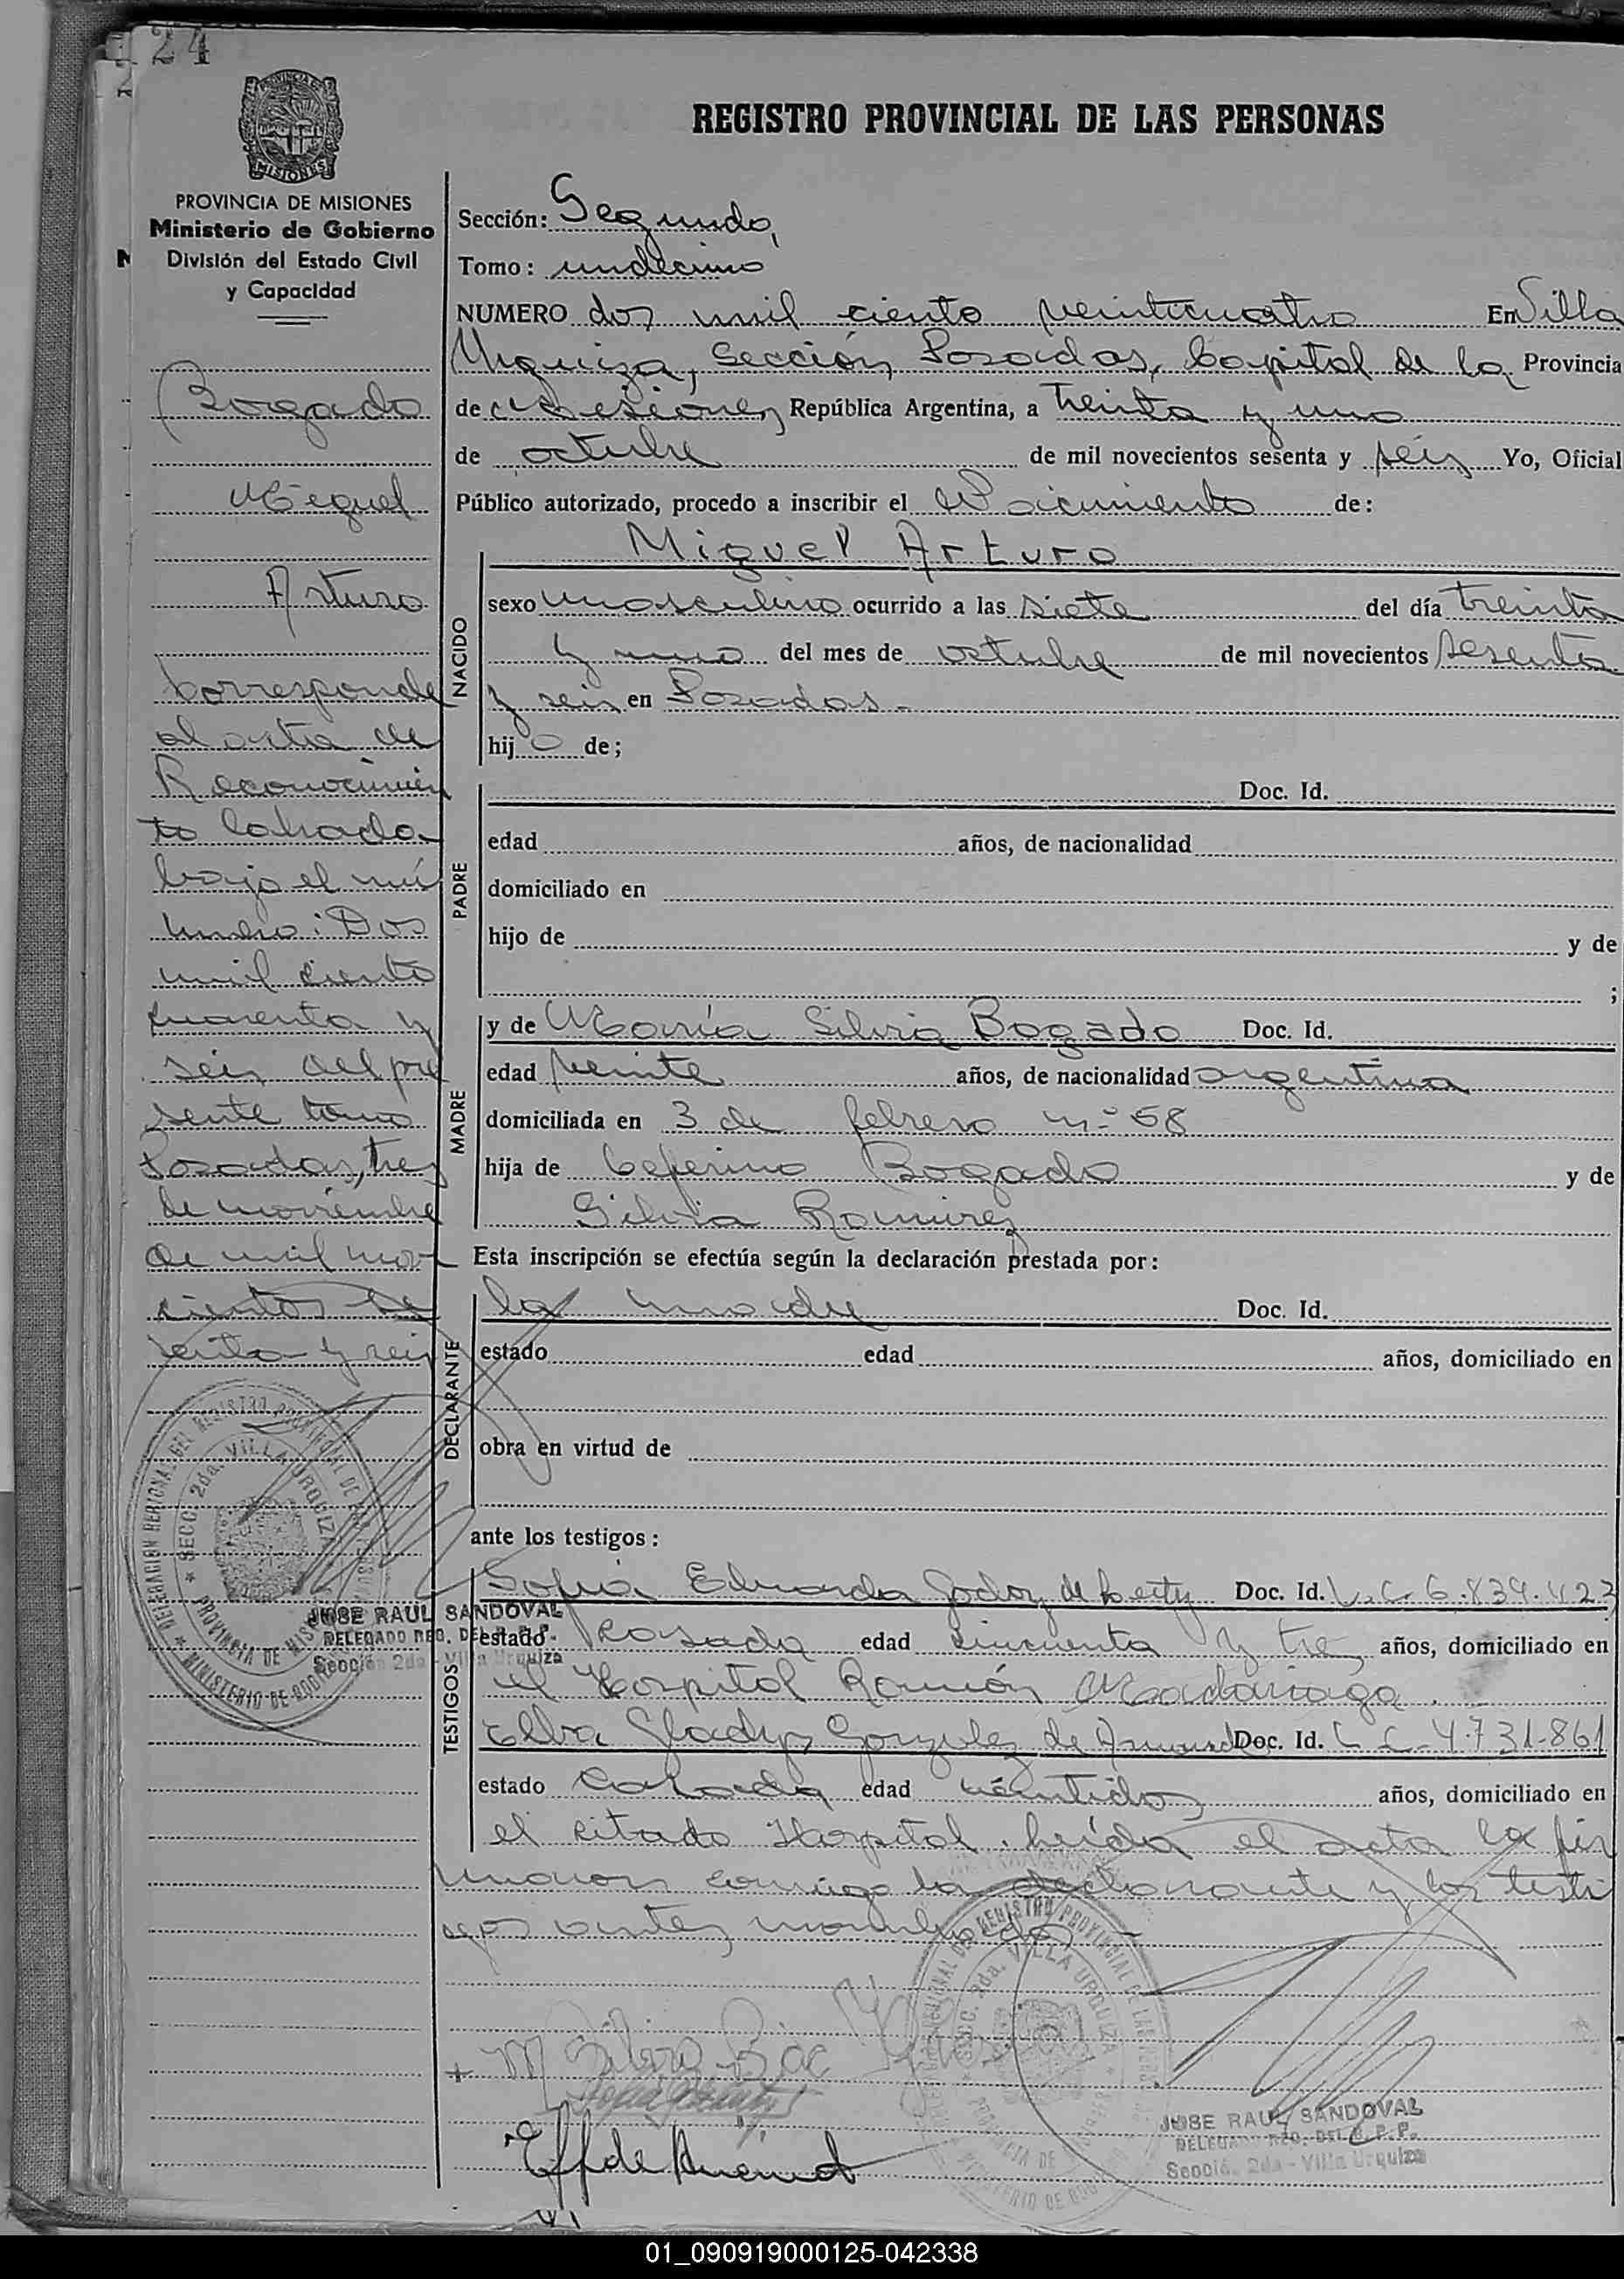 24
PROVINCIA DE MISIONES
Ministerio de Gobierno
División del Estado Civil
y Capacidad
Bogado
Miguel
Arturo
Corresponde
al acta de
Reconocimien
to labrada
bajo el nú
mero: Dos
mil ciento
cuarenta y
seis del pre
sente tomo
Posadas, tres
de noviembre
de mil nove
cientos se
senta y seis
REGISTRO PROVINCIAL DE LAS PERSONAS
Sección: Segunda,
Tomo: undécimo
NUMERO dos mil ciento veinticuatro En Villa
Urquiza, Sección Posadas, Capital de la Provincia
de Misiones República Argentina, a treinta y uno
de octubre de mil novecientos sesenta y seis Yo, Oficial
Público autorizado, procedo a inscribir el Nacimiento de:
Miguel Arturo
NACIDO
sexo masculino ocurrido a las siete del día treinta
y uno del mes de octubre de mil novecientos sesenta
y seis en Posadas.-
hijo de;
PADRE
Doc. Id.
edad años, de nacionalidad
domiciliado en
hijo de y de
;
MADRE
y de María Silvia Bogado Doc. Id.
edad veinte años, de nacionalidad argentina
domiciliada en 3 de febrero nº 58
hija de Ceferino Bogado y de
Silvia Ramirez
Esta inscripción se efectúa según la declaración prestada por:
DECLARANTE
la madre Doc. Id.
estado edad años, domiciliado en
obra en virtud de
ante los testigos:
TESTIGOS
Sofía Eduarda Godoy de Doc. Id. L.C. 6.839.423
estado Casada edad cincuenta y tres años, domiciliado en
el Hospital Ramón Madariaga.
Elba Gladys Gonzalez de Doc. Id. L.C. 4.731.861
estado Casada edad veintidos años, domiciliado en
el citado Hospital. Leída el acta la fir
maron conmigo la declarante y los testi
gos antes nombrados.-
DELEGACION REGIONAL DEL REGISTRO PROVINCIAL DE LAS PERSONAS
SECC. 2da. VILLA URQUIZA
PROVINCIA DE MISIONES
MINISTERIO DE GOBIERNO
JOSE RAUL SANDOVAL
DELEGADO REG. DEL R. P. P.
Sección 2da - Villa Urquiza
M Silvia
REGISTRO PROVINCIAL DE LAS PERSONAS
SECC. 2da. VILLA URQUIZA
PROVINCIA DE
MINISTERIO DE GOBIERNO
JOSE RAUL SANDOVAL
DELEGADO REG. DEL R. P. P.
Sección 2da - Villa Urquiza
01_090919000125-042338